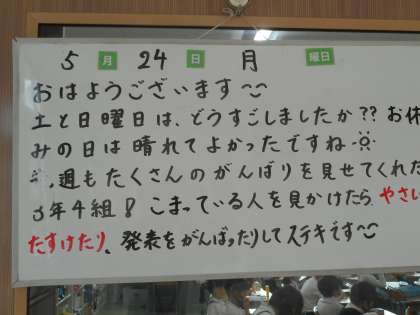 5月24日月曜日
おはようございます
土と日曜日は、どうすごしましたか?? お休
みの日は晴れてよかったですね
先週もたくさんのがんばりを見せてくれた
3年4組! こまっている人を見かけたら やさい
たすけたり、発表をがんばったりしてステキです